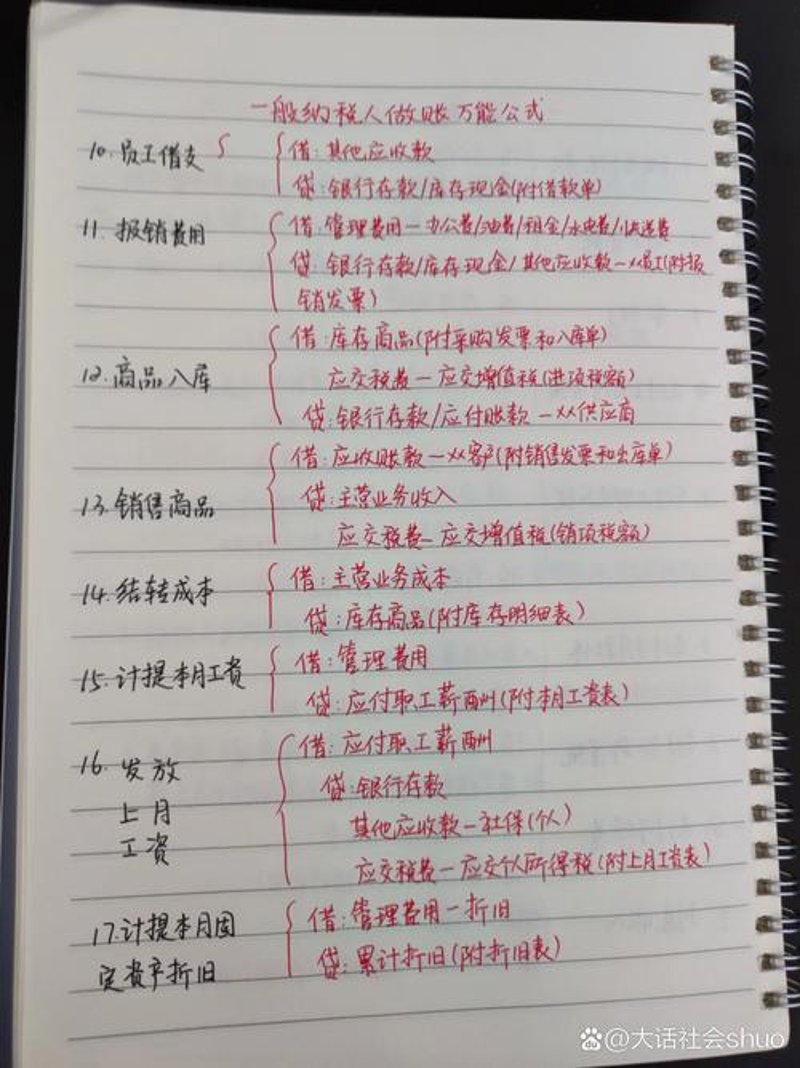 一般纳税人做账万能公式
10.员工借支 借:其他应收款
贷:银行存款/库存现金(附借款单)
11.报销费用 借:管理费用—办公费/油费/租金/水电费/快递费
贷:银行存款/库存现金/其他应收款—XX员工(附报
销发票)
借:库存商品(附采购发票和入库单)
12.商品入库 应交税费—应交增值税(进项税额)
贷:银行存款/应付账款—XX供应商
借:应收账款—XX客户(附销售发票和出库单)
13.销售商品 贷:主营业务收入
应交税费—应交增值税(销项税额)
14.结转成本 借:主营业务成本
贷:库存商品(附库存明细表)
15.计提本月工资 借:管理费用
贷:应付职工薪酬(附本月工资表)
16.发放 借:应付职工薪酬
上月 贷:银行存款
工资 其他应收款—社保(个人)
应交税费—应交个人所得税(附上月工资表)
17.计提本月固 借:管理费用—折旧
定资产折旧 贷:累计折旧(附折旧表)
@大话社会shuo